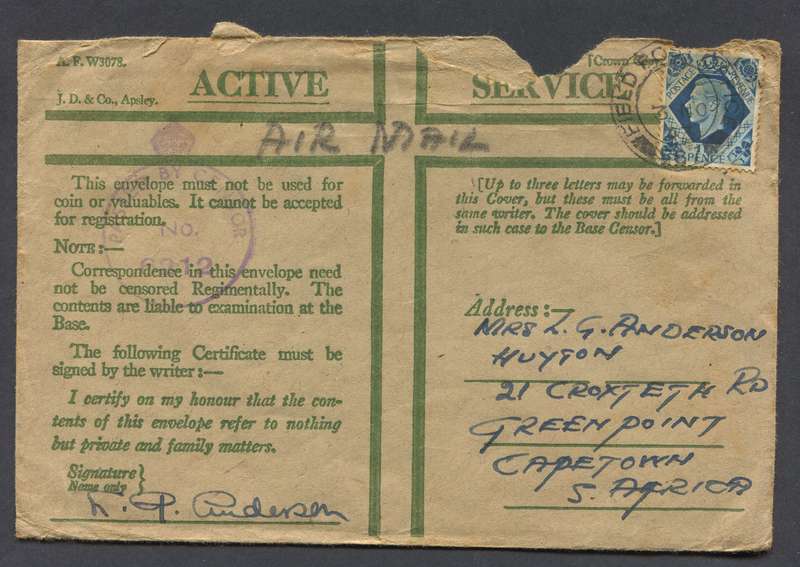 A. F. W3078.
J. D. & Co., Apsley.
ACTIVE
SERVICE
[Crown
AIR MAIL
FIELD
POSTAGE
PENCE
This envelope must not be used for
coin or valuables. It cannot be accepted
for registration.
NOTE:—
Correspondence in this envelope need
not be censored Regimentally. The
contents are liable to examination at the
Base.
The following Certificate must be
signed by the writer:—
I certify on my honour that the con-
tents of this envelope refer to nothing
but private and family matters.
Signature }
Name only
Anderson
BY
NO.
[Up to three letters may be forwarded in
this Cover, but these must be all from the
same writer. The cover should be addressed
in such case to the Base Censor.]
Address:—
MRS L. G. ANDERSON
HUYTON
21 CROXTETH RD
GREEN POINT
CAPETOWN
S. AFRICA